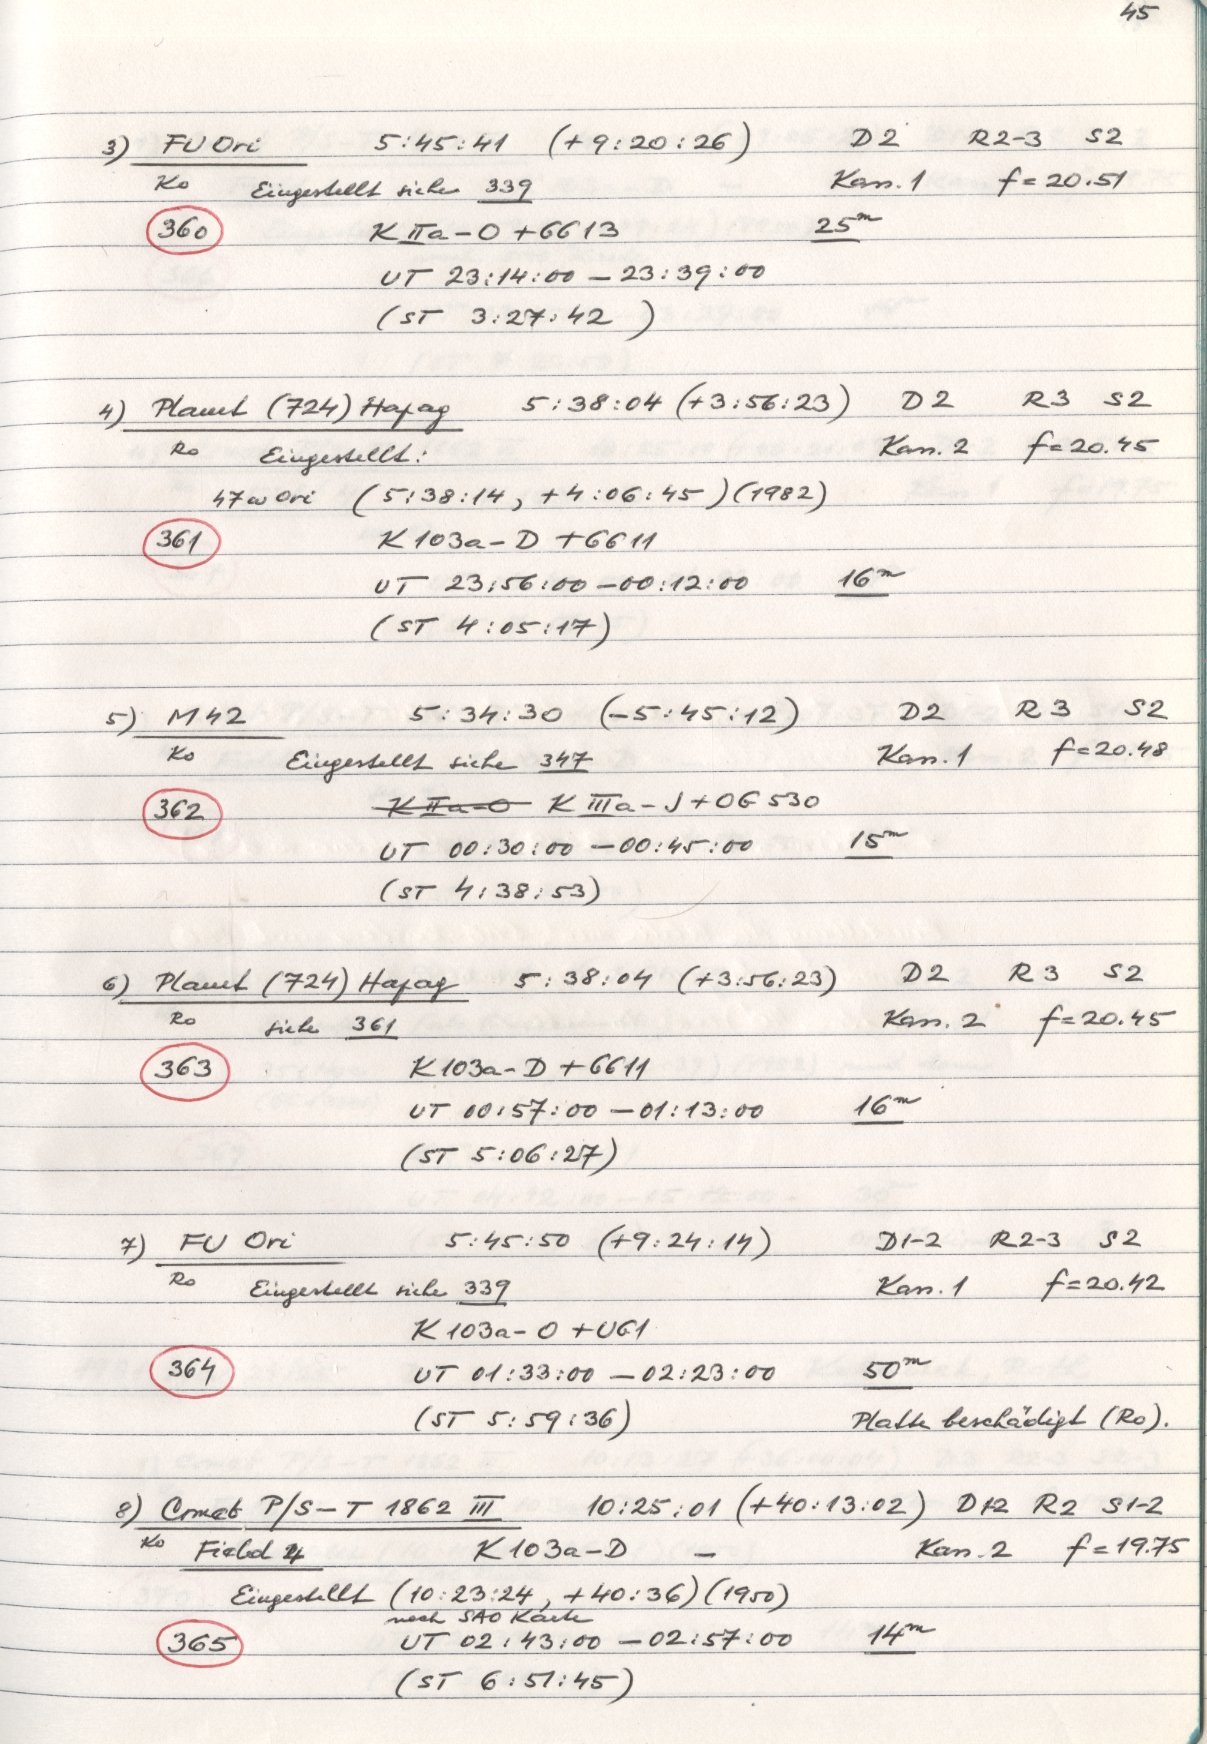 45
3) FU Ori 5:45:41 (+9:20:26) D2 R2-3 S2
Ko Eingestellt siehe 339 Kass.1 f=20.51
360 K IIa-O+GG13 25m
UT 23:14:00 – 23:39:00
(ST 3:27:42 )
4) Planet (724) Hapag 5:38:04 (+3:56:23) D2 R3 S2
Ro Eingestellt: Kass.2 f=20.45
47 ω Ori (5:38:14, +4:06:45)(1982)
361 K 103a-D+GG11
UT 23:56:00 – 00:12:00 16m
(ST 4:05:17)
5) M42 5:34:30 (-5:45:12) D2 R3 S2
Ko Eingestellt siehe 347 Kass.1 f=20.48
362 K IIa-O K IIIa-J+OG530
UT 00:30:00 – 00:45:00 15m
(ST 4:38:53)
6) Planet (724) Hapag 5:38:04 (+3:56:23) D2 R3 S2
Ro siehe 361 Kass.2 f=20.45
363 K103a-D+GG11
UT 00:57:00 – 01:13:00 16m
(ST 5:06:27)
7) FU Ori 5:45:50 (+9:24:14) D1-2 R2-3 S2
Ro Eingestellt siehe 339 Kass.1 f=20.42
K 103a-O+UG1
364 UT 01:33:00 – 02:23:00 50m
(ST 5:59:36) Platte beschädigt (Ro).
8) Comet P/S-T 1862 III 10:25:01 (+40:13:02) D1-2 R2 S1-2
Ko Field 4 K103a-D – Kass.2 f=19.75
Eingestellt (10:23:24, +40:36)(1950)
nach SAO Karte
365 UT 02:43:00 – 02:57:00 14m
(ST 6:51:45)